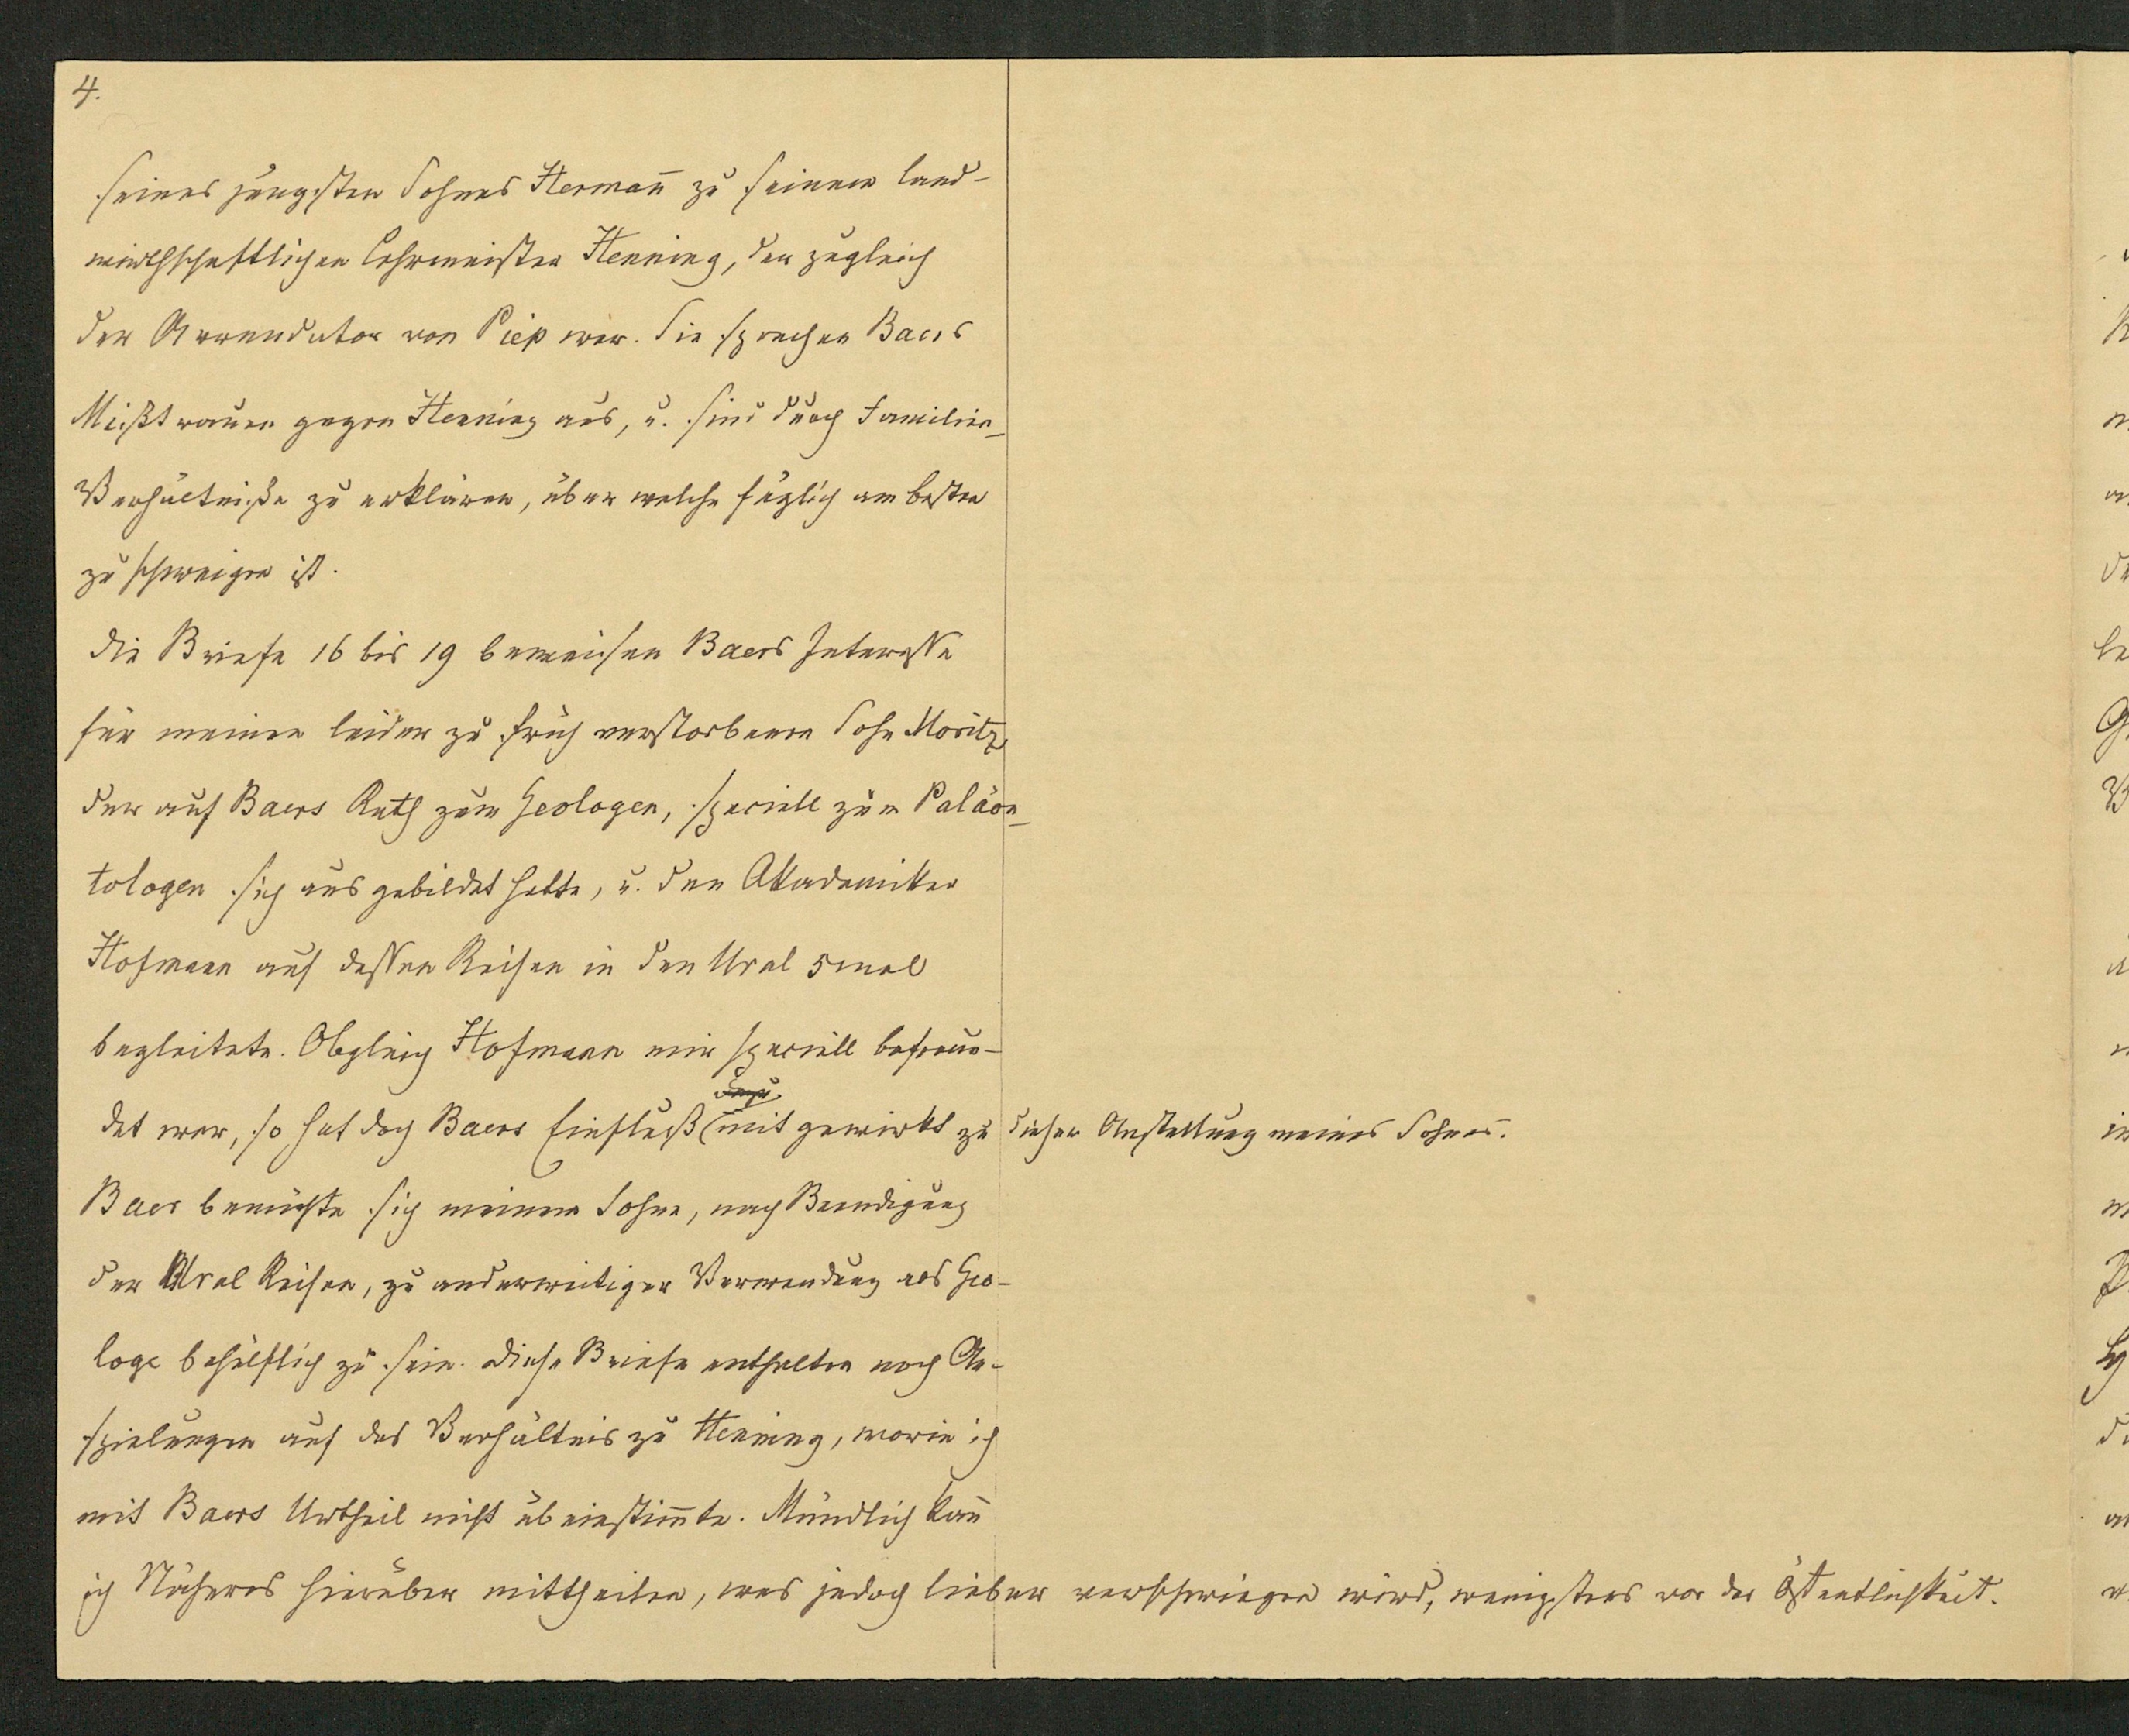 4.
seines jüngsten Sohnes Hermañ zu seinem land-
wirthschaftlichen Lehrmeister Henning, der zugleich
der Arrendator von Piep war. Sie sprechen Baers
Mißtrauen gegen Henning aus, u. sind durch Familien-
Verhältniße zu erklären, über welche füglich am besten
zu schweigen ist.
Die Briefe 16 bis 19 beweisen Baers Interesse
für meinen leider zu früh verstorbenen Sohn Moritz,
der auf Baers Rath zum Geologen, speciell zum Paläon-
tologen sich ausgebildet hatte, u. den Akademiker
Hofmann auf dessen Reisen in den Ural 5 mal
begleitete. Obgleich Hofmann mir speciell befreun-
det war, so hat doch Baers Einfluß mit gewirkt zu dieser Anstellung meines Sohnes.
Baer bemühte sich meinem Sohne, nach Beendigung
der Ural Reisen, zu anderweitiger Verwendung als Geo-
loge behülflich zu sein. Diese Briefe enthalten noch An-
spielungen auf das Verhältnis zu Henning, worin ich
mit Baers Urtheil nicht übeinstim̄te. Mündlich kañ
ich Näheres hierüber mittheilen, was jedoch lieber verschwiegen wird, wenigstens vor der Öffentlichkeit.